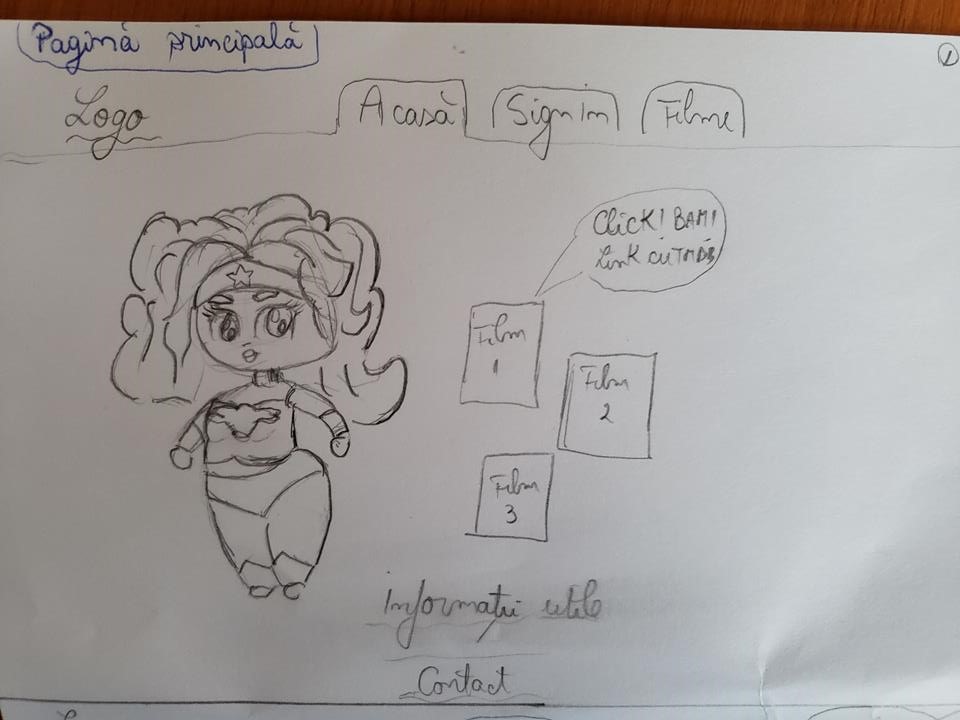 Pagină principală
1
Logo
Acasă
Sign in
Filme
Click! BAM!
Link către
Film
1
Film
2
Film
3
Informații utile
Contact